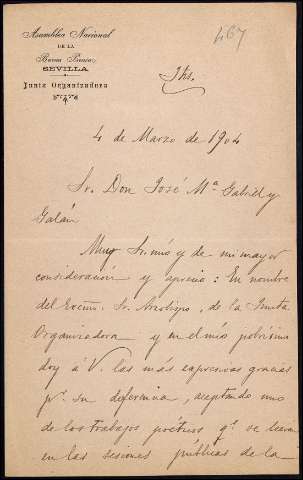 Asamblea Nacional
DE LA
Buena Prensa
SEVILLA
Junta Organizadora
467
Jhs.
4 de Marzo de 1904
Sr. Don José Mª Gabriel y
Galán
Muy Sr. mío y de mi mayor
consideración y aprecio: En nombre
del Excmo. Sr. Arzobispo, de la Junta
Organizadora y en el mío pobrísimo
doy á V. las más expresivas gracias
pr. su deferencia, aceptando uno
de los trabajos poéticos qe. se leerán
en las sesiones públicas de la